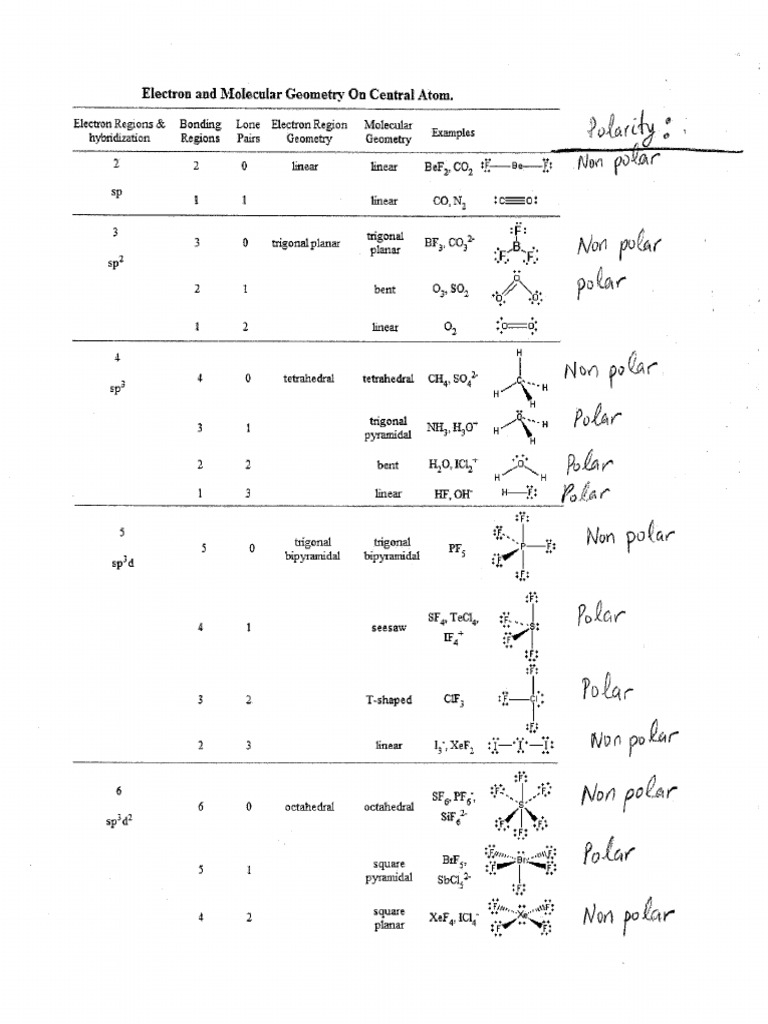 Electron and Molecular Geometry On Central Atom.
Electron Regions & hybridization Bonding Regions Lone Pairs Electron Region Geometry Molecular Geometry Examples Polarity:
2 2 0 linear linear BeF2, CO2 :F—Be—F: Non polar
sp 1 1 linear CO, N2 :C≡O:
3 3 0 trigonal planar trigonal planar BF3, CO3 2- F B F F Non polar
sp2
2 1 bent O3, SO2 O O O polar
1 2 linear O2 O=O
4 4 0 tetrahedral tetrahedral CH4, SO4 2- H C H H H Non polar
sp3
3 1 trigonal pyramidal NH3, H3O+ H O H H Polar
2 2 bent H2O, ICl2+ H O H Polar
1 3 linear HF, OH- H—F: Polar
5 5 0 trigonal bipyramidal trigonal bipyramidal PF5 F F P F F F Non polar
sp3d
4 1 seesaw SF4, TeCl4, IF4+ F F S: F F Polar
3 2 T-shaped ClF3 F F Cl F Polar
2 3 linear I3-, XeF2 :I—I—I: Non polar
6 6 0 octahedral octahedral SF6, PF6-, SiF6 2- F F F S F F F Non polar
sp3d2
5 1 square pyramidal BrF5, SbCl5 2- F F Br F F F Polar
4 2 square planar XeF4, ICl4- F F Xe F F Non polar